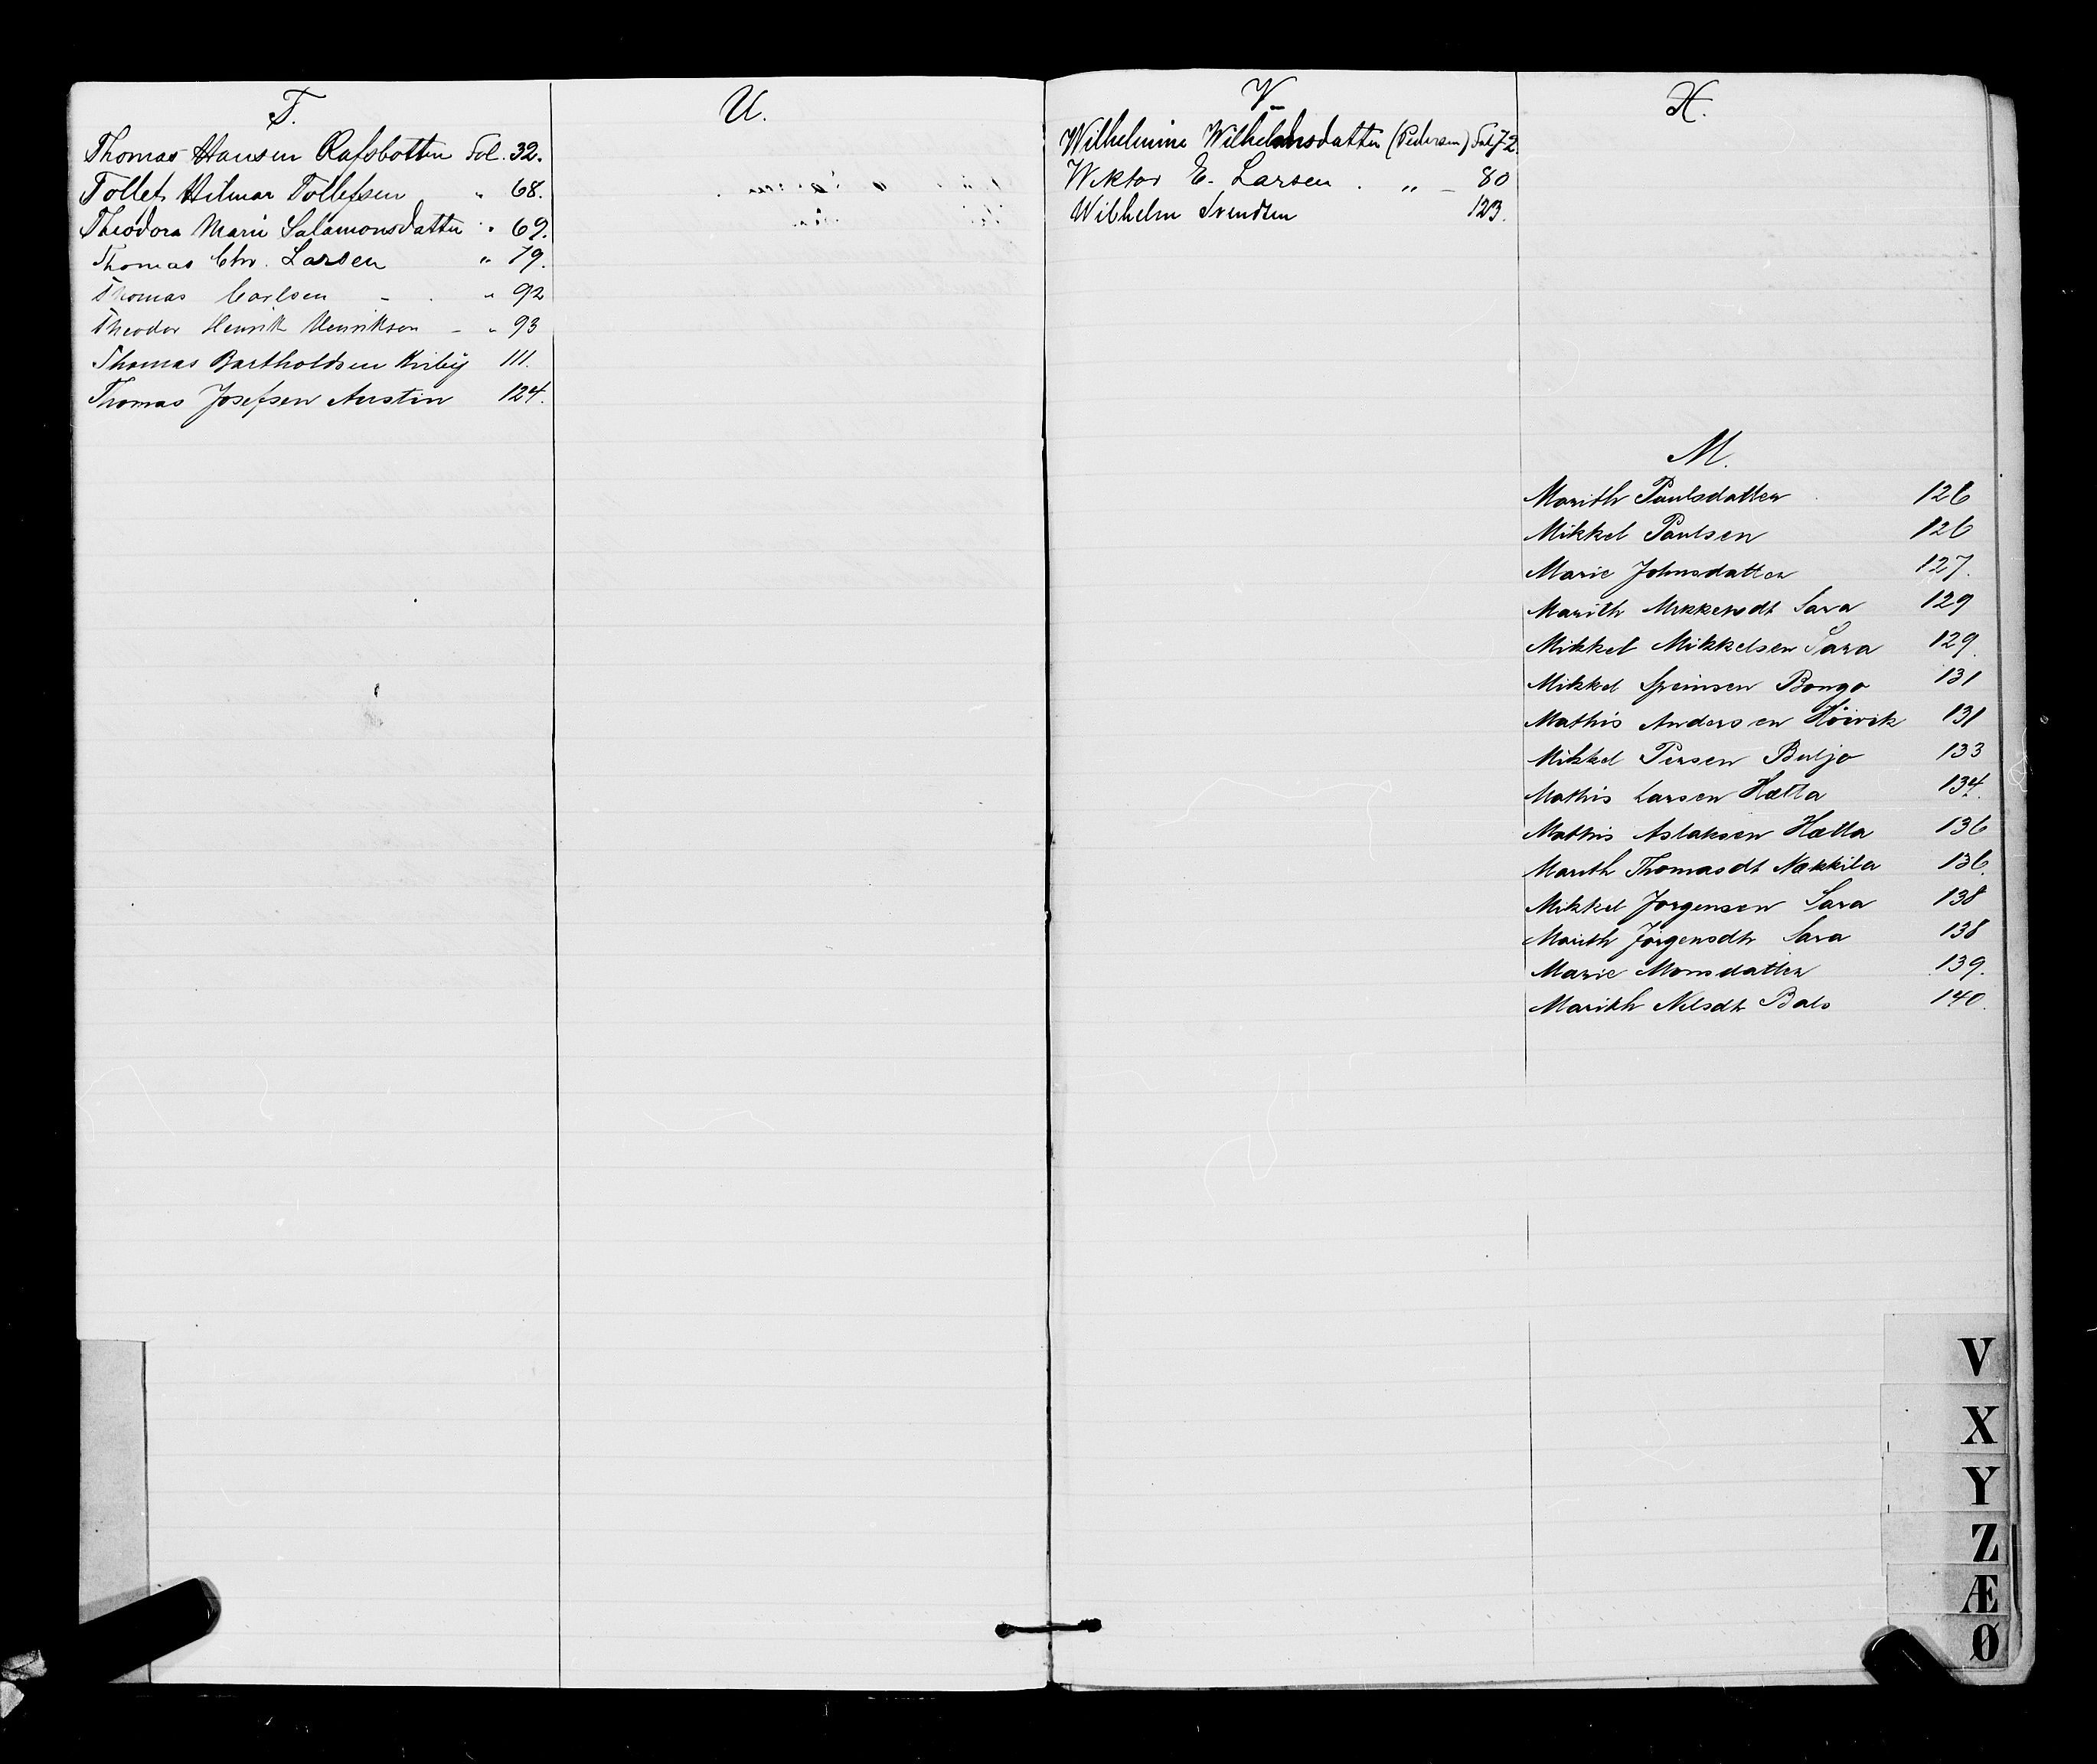 T.
Thomas Hansen Rafsbotten Fol. 32.
Tollef Hilmar Tollefsen " 68.
Theodora Marie Salamonsdatter " 69.
Thomas Chr. Larsen " 79.
Thomas Carlsen - " 92
Theodor Henrik Henriksen - " 93
Thomas Bartholdsen Kviby 111.
Thomas Josefsen Austin 124.
U.
V.
Wilhelmine Wilhelmsdatter (Pedersen) Fol 72.
Wiktor E. Larsen . " - 80
Wilhelm Svendsen 123.
X.
M.
Marith Paulsdatter 126
Mikkel Paulsen 126
Marie Johnsdatter 127.
Marith Mikkelsdt Sara 129
Mikkel Mikkelsen Sara 129.
Mikkel Speinsen Bongo 131
Mathis Andersen Höivik 131
Mikkel Persen Buljo 133
Mathis Larsen Hætta 134.
Mathis Aslaksen Hætta 136
Marith Thomasdt Nækkila 136.
Mikkel Jørgensen Sara 138
Marith Jørgensdtr Sara 138
Marie Monsdatter 139.
Marith Nilsdtr Bals 140.
V
X
Y
Z
Æ
Ø